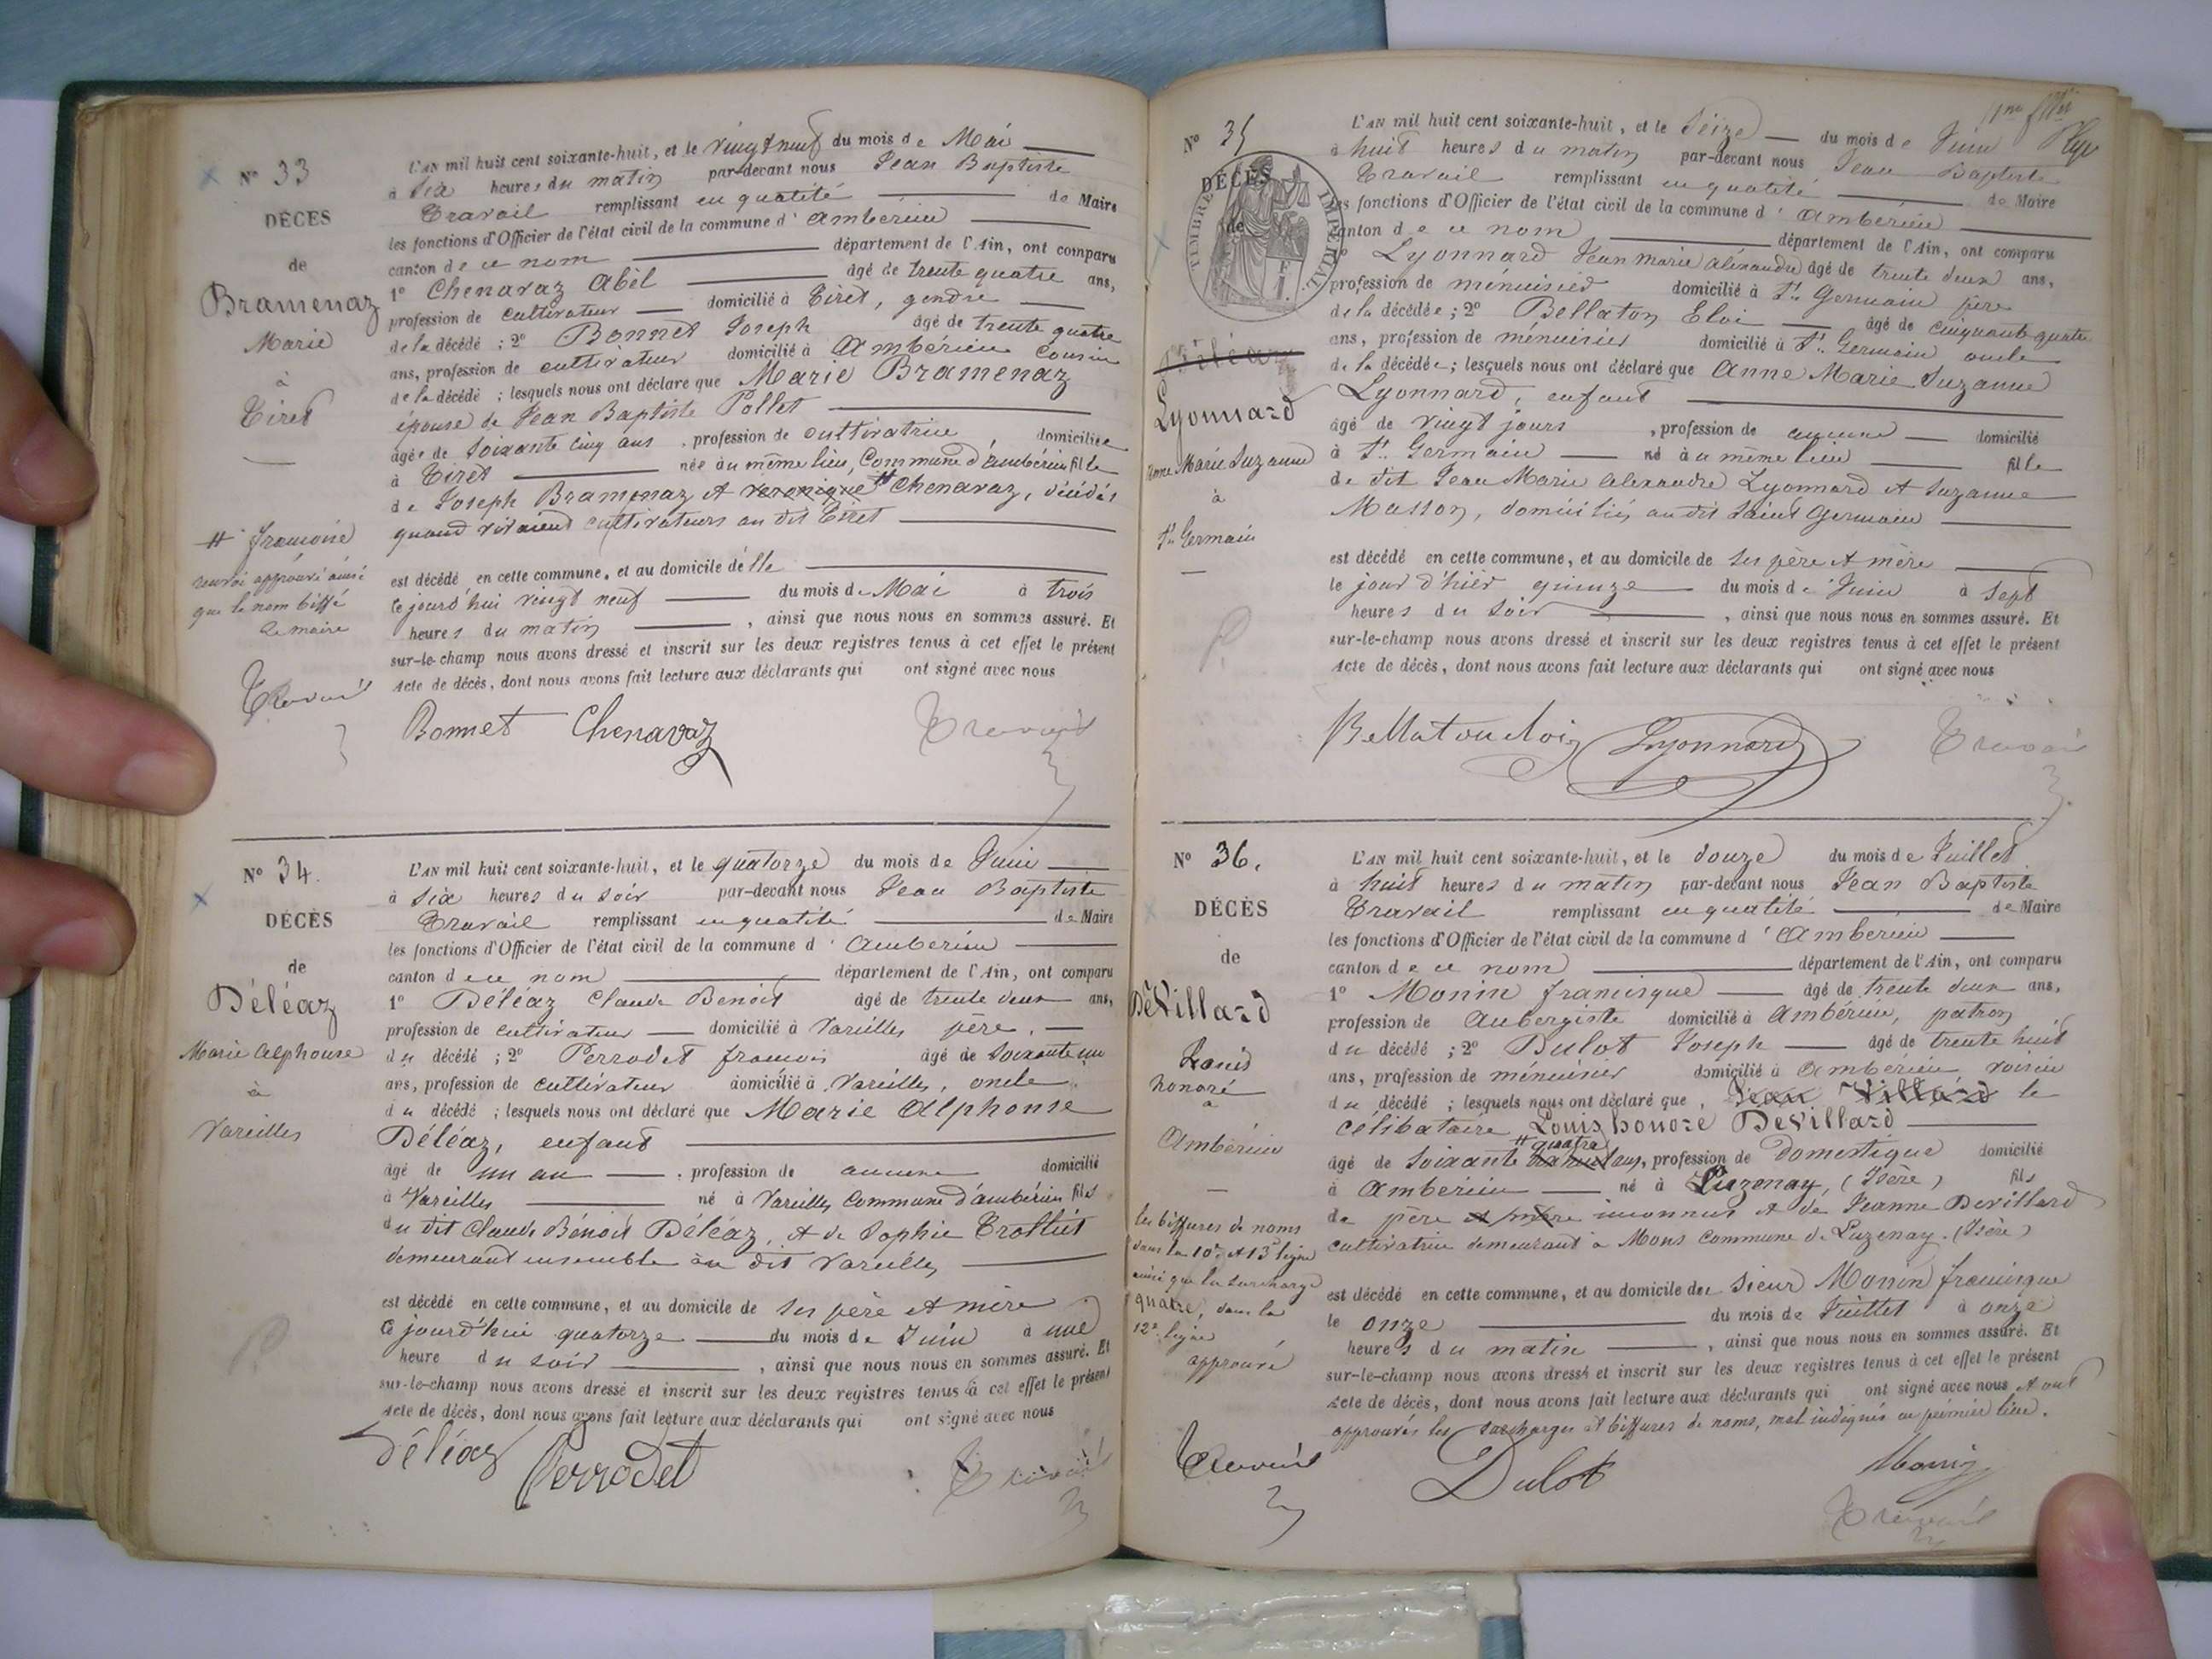 N° 33
DÉCÈS
de
Bramenaz
Marie
à
Tiret
# françoise
renvoi approuvé ainsi
que le nom biffé
Le maire
Travail
L'AN mil huit cent soixante-huit, et le vingt neuf du mois de Mai
à six heures du matin par-devant nous Jean Baptiste
Travail remplissant en qualité de Maire
les fonctions d'Officier de l'état civil de la commune d'Ambérieu
canton de ce nom département de l'Ain, ont comparu
1° Chenavaz Abel âgé de trente quatre ans,
profession de cultivateur domicilié à Tiret, gendre
de la décédé ; 2° Bonnet Joseph âgé de trente quatre
ans, profession de cultivateur domicilié à Ambérieu cousin
de la décédé ; lesquels nous ont déclaré que Marie Bramenaz
épouse de Jean Baptiste Pollet
âgée de soixante cinq ans, profession de cultivatrice domiciliée
à Tiret née au même lieu, Commune d'ambérieu fille
de Joseph Bramenaz et veronique # Chenavaz, décédés
quand vivaient cultivateurs au dit Tiret
est décédé en cette commune, et au domicile d'elle
Cejourd'hui vingt neuf du mois de Mai à trois
heures du matin, ainsi que nous nous en sommes assuré. Et
sur-le-champ nous avons dressé et inscrit sur les deux registres tenus à cet effet le présent
Acte de décès, dont nous avons fait lecture aux déclarants qui ont signé avec nous
Bonnet Chenavaz Travail
N° 34.
DÉCÈS
de
Déléaz
Marie alphonse
à
Vareilles
L'AN mil huit cent soixante-huit, et le quatorze du mois de Juin
à six heures du soir par-devant nous Jean Baptiste
Travail remplissant en qualité de Maire
les fonctions d'Officier de l'état civil de la commune d'Ambérieu
canton de ce nom département de l'Ain, ont comparu
1° Déléaz Claude Benoit âgé de trente deux ans,
profession de cultivateur domicilié à Vareilles père,
du décédé ; 2° Perrodet françois âgé de soixante un
ans, profession de cultivateur domicilié à Vareilles, oncle
du décédé ; lesquels nous ont déclaré que Marie Alphonse
Déléaz, enfant
âgé de un an, profession de aucune domicilié
à Vareilles né à Vareilles Commune d'ambérieu fils
du dit Claude Benoit Déléaz, et de Sophie Trollict
demeurant ensemble au dit Vareilles
est décédé en cette commune, et au domicile de ses père et mère
Cejourd'hui quatorze du mois de Juin à une
heure du soir, ainsi que nous nous en sommes assuré. Et
sur-le-champ nous avons dressé et inscrit sur les deux registres tenus à cet effet le présent
Acte de décès, dont nous avons fait lecture aux déclarants qui ont signé avec nous
Déléaz Perrodet Travail
N° 35
DÉCÈS
de
TIMBRE IMPÉRIAL
Déléaz
Lyonnard
Anne Marie Suzanne
à
St. Germain
L'AN mil huit cent soixante-huit, et le seize du mois de Juin
à huit heures du matin par-devant nous Jean Baptiste
Travail remplissant en qualité de Maire
les fonctions d'Officier de l'état civil de la commune d'Ambérieu
canton de ce nom département de l'Ain, ont comparu
1° Lyonnard Jean marie aléxandre âgé de trente deux ans,
profession de ménuisier domicilié à St. Germain père
de la décédée ; 2° Bellaton Eloi âgé de cinquante quatre
ans, profession de ménuisier domicilié à St. Germain oncle
de la décédée ; lesquels nous ont déclaré que Anne Marie Suzanne
Lyonnard, enfant
âgé de vingt jours, profession de aucune domicilié
à St. Germain né à u même lieu fille
de dit Jean Marie alexandre Lyonnard et Suzanne
Masson, domiciliés au dit Saint Germain
est décédé en cette commune, et au domicile de ses père et mère
le jour d'hier quinze du mois de Juin à sept
heures du soir, ainsi que nous nous en sommes assuré. Et
sur-le-champ nous avons dressé et inscrit sur les deux registres tenus à cet effet le présent
Acte de décès, dont nous avons fait lecture aux déclarants qui ont signé avec nous
Bellaton eloi Lyonnard Travail
N° 36.
DÉCÈS
de
DeVillard
Louis
honoré
à
Ambérieu
les biffures de noms
dans la 10e et 13e ligne
ainsi que la surcharge
quatre, dans la
12e ligne
approuvé
Travail
L'AN mil huit cent soixante-huit, et le douze du mois de Juillet
à huit heures du matin par-devant nous Jean Baptiste
Travail remplissant en qualité de Maire
les fonctions d'Officier de l'état civil de la commune d'Ambérieu
canton de ce nom département de l'Ain, ont comparu
1° Monin francisque âgé de trente deux ans,
profession de Aubergiste domicilié à Ambérieu, patron
du décédé ; 2° Dulot Joseph âgé de trente huit
ans, profession de ménuisier domicilié à Ambérieu, voisin
du décédé ; lesquels nous ont déclaré que, Jean Villard le
célibataire Louis honoré DeVillard
âgé de soixante # quatre ans, profession de Domestique domicilié
à Ambérieu né à Luzenay, (Isère) fils
de père et mère inconnus et de Jeanne Devillard
cultivatrice demeurant à Mons Commune de Luzenay. (Isère)
est décédé en cette commune, et au domicile du sieur Monin francisque
le onze du mois de Juillet à onze
heures du matin, ainsi que nous nous en sommes assuré. Et
sur-le-champ nous avons dressé et inscrit sur les deux registres tenus à cet effet le présent
Acte de décès, dont nous avons fait lecture aux déclarants qui ont signé avec nous et ont
approuvés les surcharges et biffures de noms, mal indiqués en premier lieu.
Dulot Monin
Travail